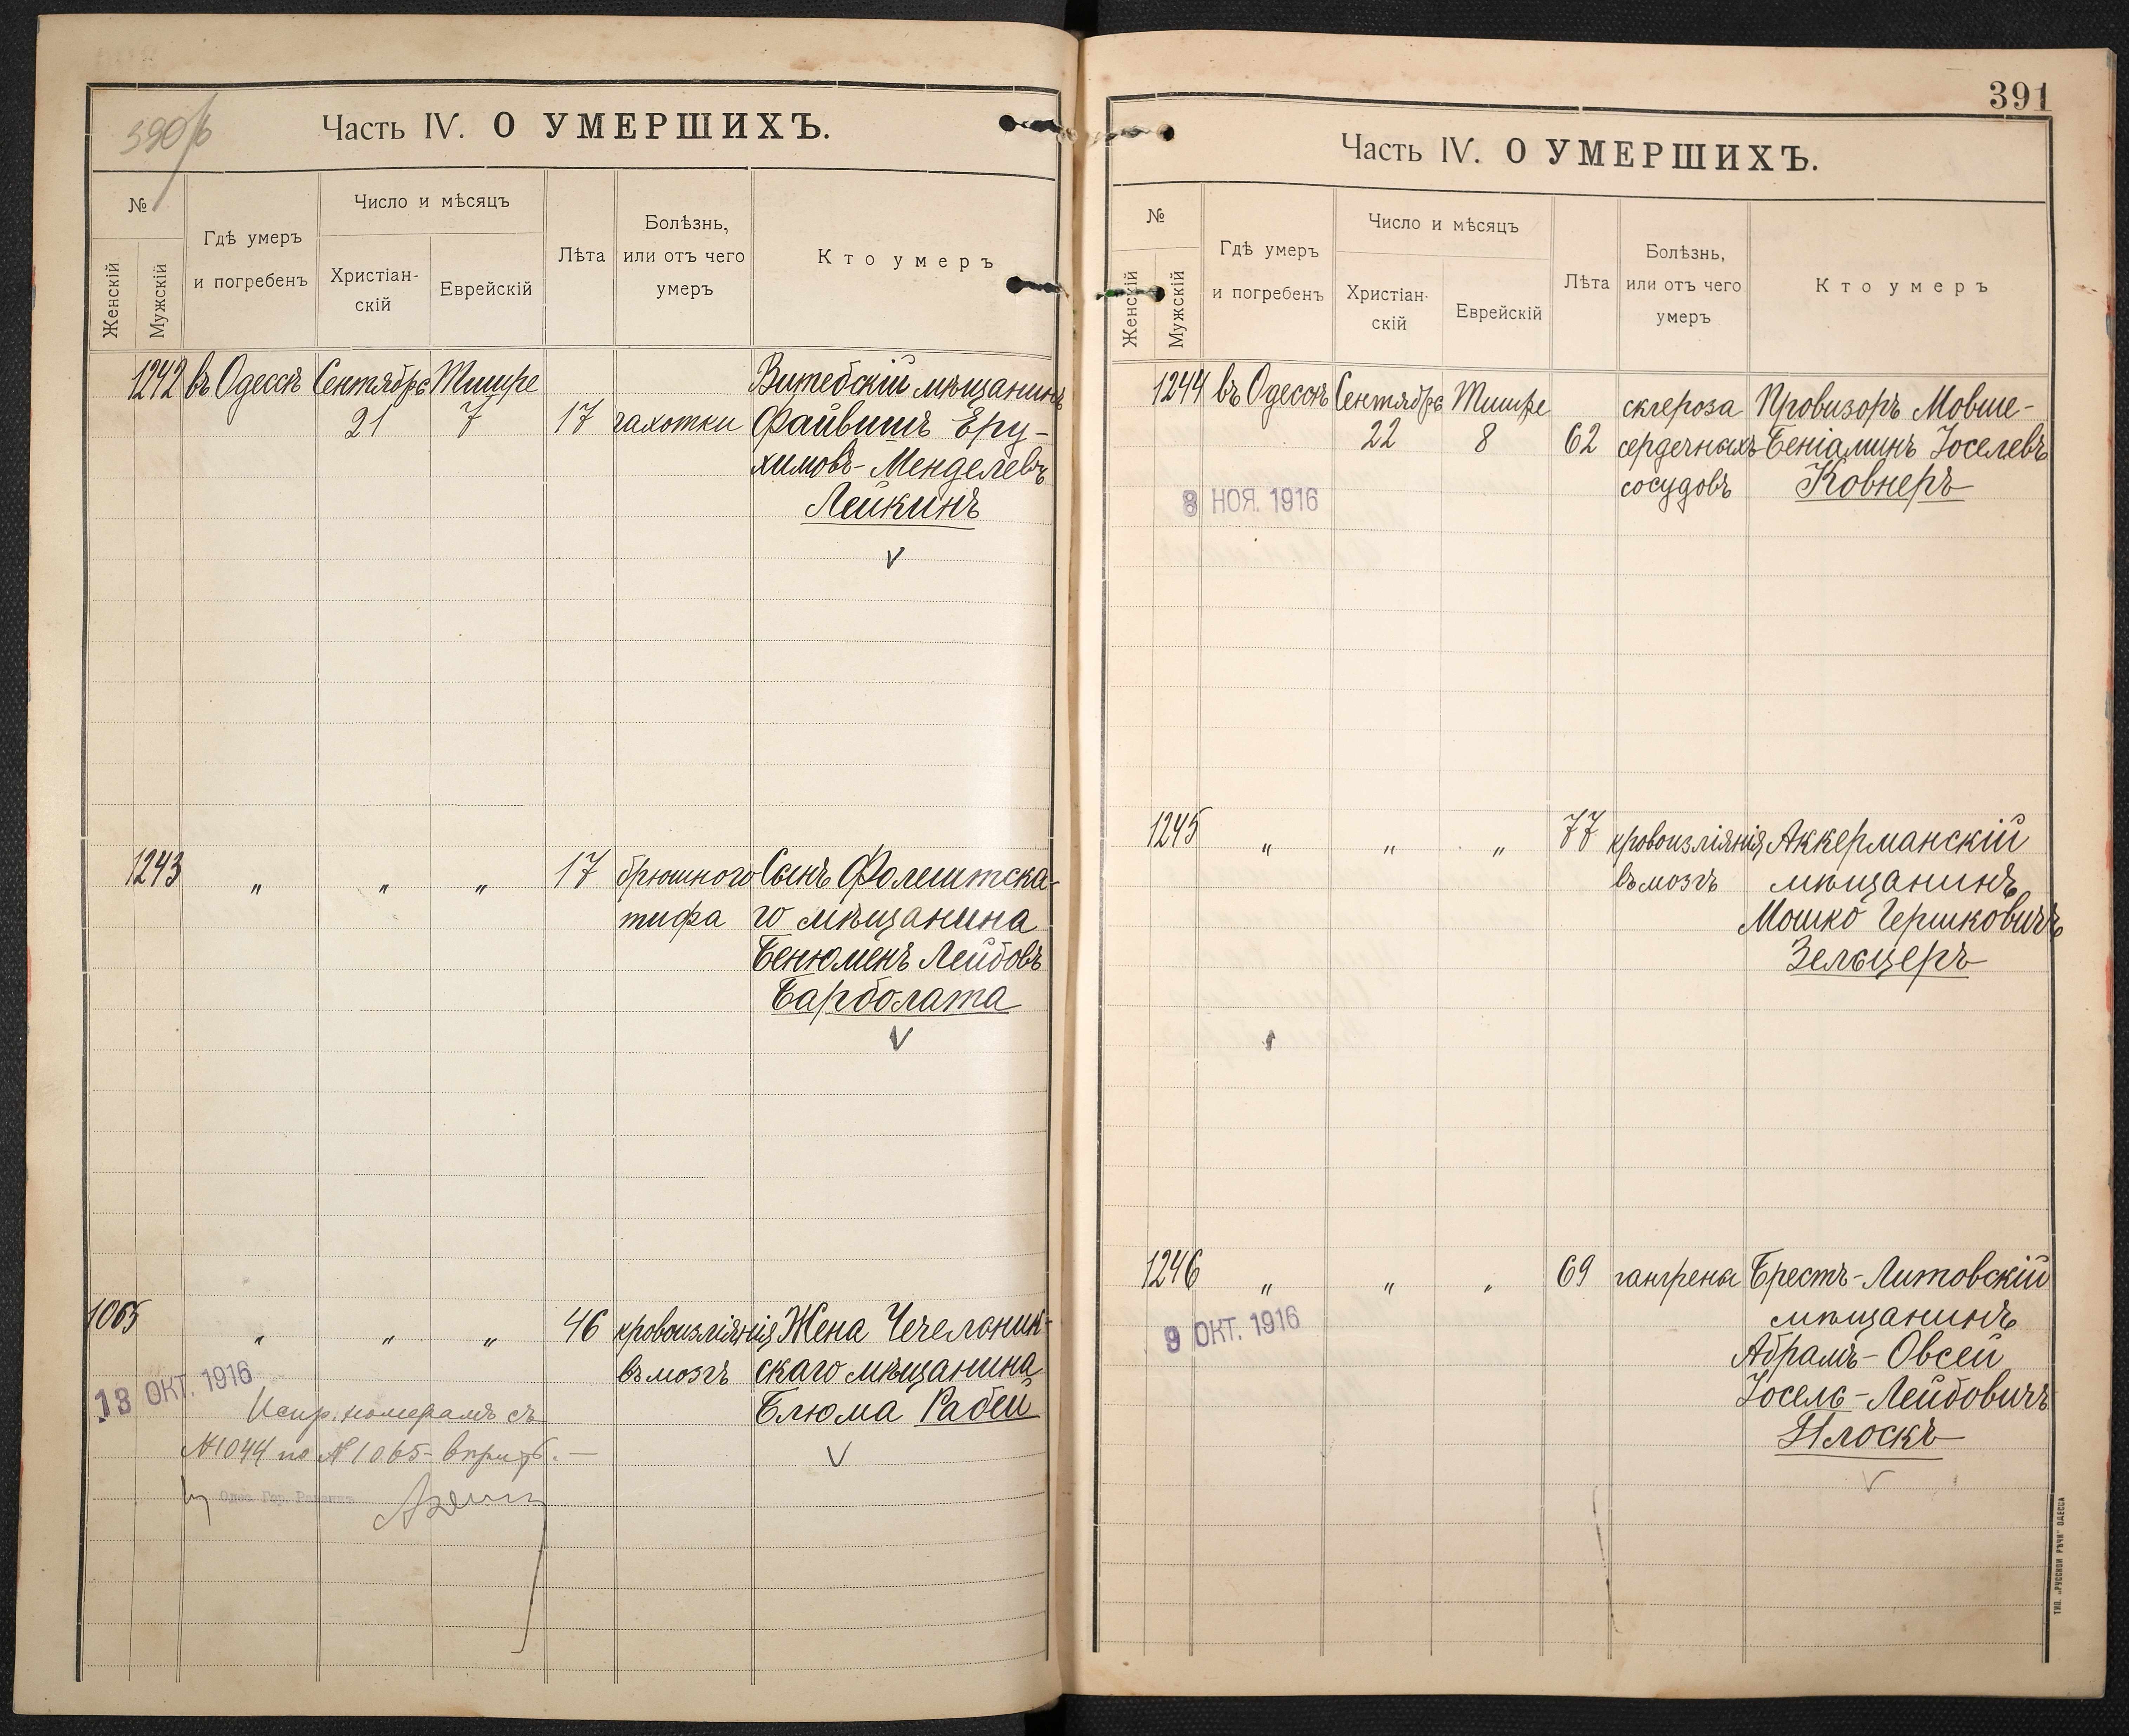 390 б
Часть IV. О УМЕРШИХЪ.
№
Женскій
Мужскій
Гдѣ умеръ
и погребенъ
Число и мѣсяцъ
Христіан-
скій
Еврейскій
Лѣта
Болѣзнь,
или отъ чего
умеръ
Кто умеръ
1242 въ Одессѣ Сентября Тишре Витебскій мѣщанинъ
21 7 17 чахотки Файвишъ Еру-
химовъ-Менделевъ
Лейкинъ
1243 " " " 17 брюшного Сынъ Фолештска-
тифа го мѣщанина
Бенюменъ Лейбовъ
Барболата
1065 " " " 46 кровоизліянія Жена Чечельник-
въ мозгъ скаго мѣщанина
Блюма Рабей
13 ОКТ. 1916
Испр. номерамъ съ
№1044 по №1065-
Одес. Гор. Раввинъ
391
Часть IV. О УМЕРШИХЪ.
№
Женскій
Мужскій
Гдѣ умеръ
и погребенъ
Число и мѣсяцъ
Христіан-
скій
Еврейскій
Лѣта
Болѣзнь,
или отъ чего
умеръ
Кто умеръ
1244 въ Одессѣ Сентября Тишре склероза Провизоръ Мовше-
22 8 62 сердечныхъ Беніаминъ Іоселевъ
сосудовъ Ковнеръ
8 НОЯ. 1916
1245 " " " 77 кровоизліянія Аккерманскій
въ мозгъ мѣщанинъ
Мошко Гершковичъ
Зельцеръ
1246 " " " 69 гангрены Брестъ-Литовскій
мѣщанинъ
9 ОКТ. 1916
Абрамъ-Овсей
Іосель-Лейбовичъ
Плоскъ
ТИП. „РУССКОЙ РѢЧИ" ОДЕССА